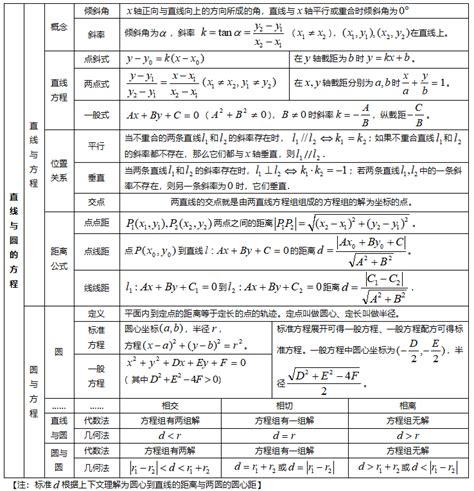 直线与圆的方程
直线与方程
概念
倾斜角
x轴正向与直线向上的方向所成的角，直线与x轴平行或重合时倾斜角为0°
斜率
倾斜角为α，斜率 k=tanα=(y₂-y₁)/(x₂-x₁) (x₁≠x₂)，(x₁,y₁),(x₂,y₂)在直线上。
直线方程
点斜式
y-y₀=k(x-x₀)
在y轴截距为b时y=kx+b。
两点式
(y-y₁)/(y₂-y₁)=(x-x₁)/(x₂-x₁) (x₁≠x₂,y₁≠y₂)
在x,y轴截距分别为a,b时x/a+y/b=1。
一般式
Ax+By+C=0 (A²+B²≠0)，B≠0时斜率k=-A/B，纵截距-C/B。
位置关系
平行
当不重合的两条直线l₁和l₂的斜率存在时，l₁//l₂⇔k₁=k₂；如果不重合直线l₁和l₂
的斜率都不存在，那么它们都与x轴垂直，则l₁//l₂．
垂直
当两条直线l₁和l₂的斜率存在时，l₁⊥l₂⇔k₁·k₂=-1；若两条直线l₁,l₂中的一条斜
率不存在，则另一条斜率为0时，它们垂直．
交点
两直线的交点就是由两直线方程组组成的方程组的解为坐标的点。
距离公式
点点距
P₁(x₁,y₁),P₂(x₂,y₂)两点之间的距离|P₁P₂|=√((x₂-x₁)²+(y₂-y₁)²)。
点线距
点P(x₀,y₀)到直线l:Ax+By+C=0的距离d=|Ax₀+By₀+C|/√(A²+B²)。
线线距
l₁:Ax+By+C₁=0到l₂:Ax+By+C₂=0距离d=|C₁-C₂|/√(A²+B²)。
圆与方程
圆
定义
平面内到定点的距离等于定长的点的轨迹。定点叫做圆心、定长叫做半径。
标准方程
圆心坐标(a,b)，半径r，
方程(x-a)²+(y-b)²=r²。
一般方程
x²+y²+Dx+Ey+F=0
(其中D²+E²-4F>0)
标准方程展开可得一般方程、一般方程配方可得标
准方程。一般方程中圆心坐标为(-D/2,-E/2)，半
径√(D²+E²-4F)/2。
…… …… 相交 相切 相离
直线与圆
代数法 方程组有两组解 方程组有一组解 方程组无解
几何法 d<r d=r d>r
圆与圆
代数法 方程组有两解 方程组有一组解 方程组无解
几何法 |r₁-r₂|<d<r₁+r₂ d=r₁+r₂或d=|r₁-r₂| d>r₁+r₂或d<|r₁-r₂|
【注：标准d根据上下文理解为圆心到直线的距离与两圆的圆心距】